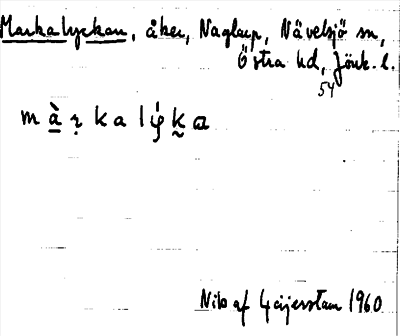 Markalyckan, åker, Naglarp, Nävelsjö sn,
Östra hd, Jönk. l.
54
Nils af Geijerstam 1960